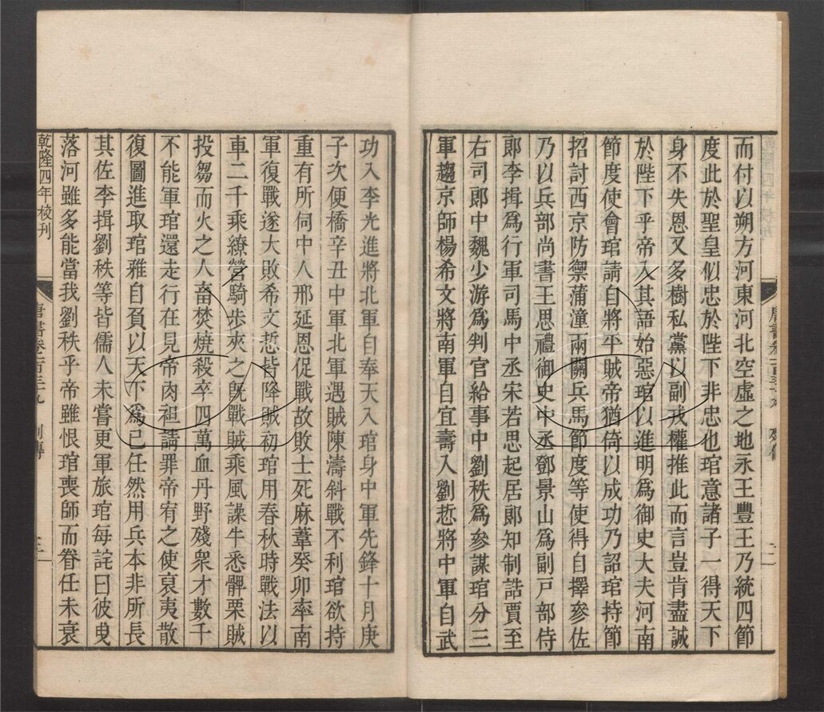 而付以朔方河東河北空虛之地永王豐王乃統四節
度此於聖皇似忠於陛下非忠也琯意諸子一得天下
身不失恩又多樹私黨以副戎權推此而言豈肯盡誠
於陛下乎帝入其語始惡琯以進明爲御史大夫河南
節度使會琯請自將平賊帝猶倚以成功乃詔琯持節
招討西京防禦蒲潼兩關兵馬節度等使得自擇參佐
乃以兵部尚書王思禮御史中丞鄧景山爲副戸部侍
郎李揖爲行軍司馬中丞宋若思起居郎知制誥賈至
右司郎中魏少游爲判官給事中劉秩爲參謀琯分三
軍趨京師楊希文將南軍自宜壽入劉悊將中軍自武
功入李光進將北軍自奉天入琯身中軍先鋒十月庚
子次便橋辛丑中軍北軍遇賊陳濤斜戰不利琯欲持
重有所伺中人邢延恩促戰故敗士死麻葦癸卯率南
軍復戰遂大敗希文悊皆降賊初琯用春秋時戰法以
車二千乘繚營騎步夾之旣戰賊乘風譟牛悉髀栗賊
投芻而火之人畜焚燒殺卒四萬血丹野殘衆才數千
不能軍琯還走行在見帝肉袒請罪帝宥之使裒夷散
復圖進取琯雅自負以天下爲己任然用兵本非所長
其佐李揖劉秩等皆儒人未嘗更軍旅琯每詫曰彼曳
落河雖多能當我劉秩乎帝雖恨琯喪師而眷任未衰
乾隆四年校刊
唐書卷一百三十九
列傳